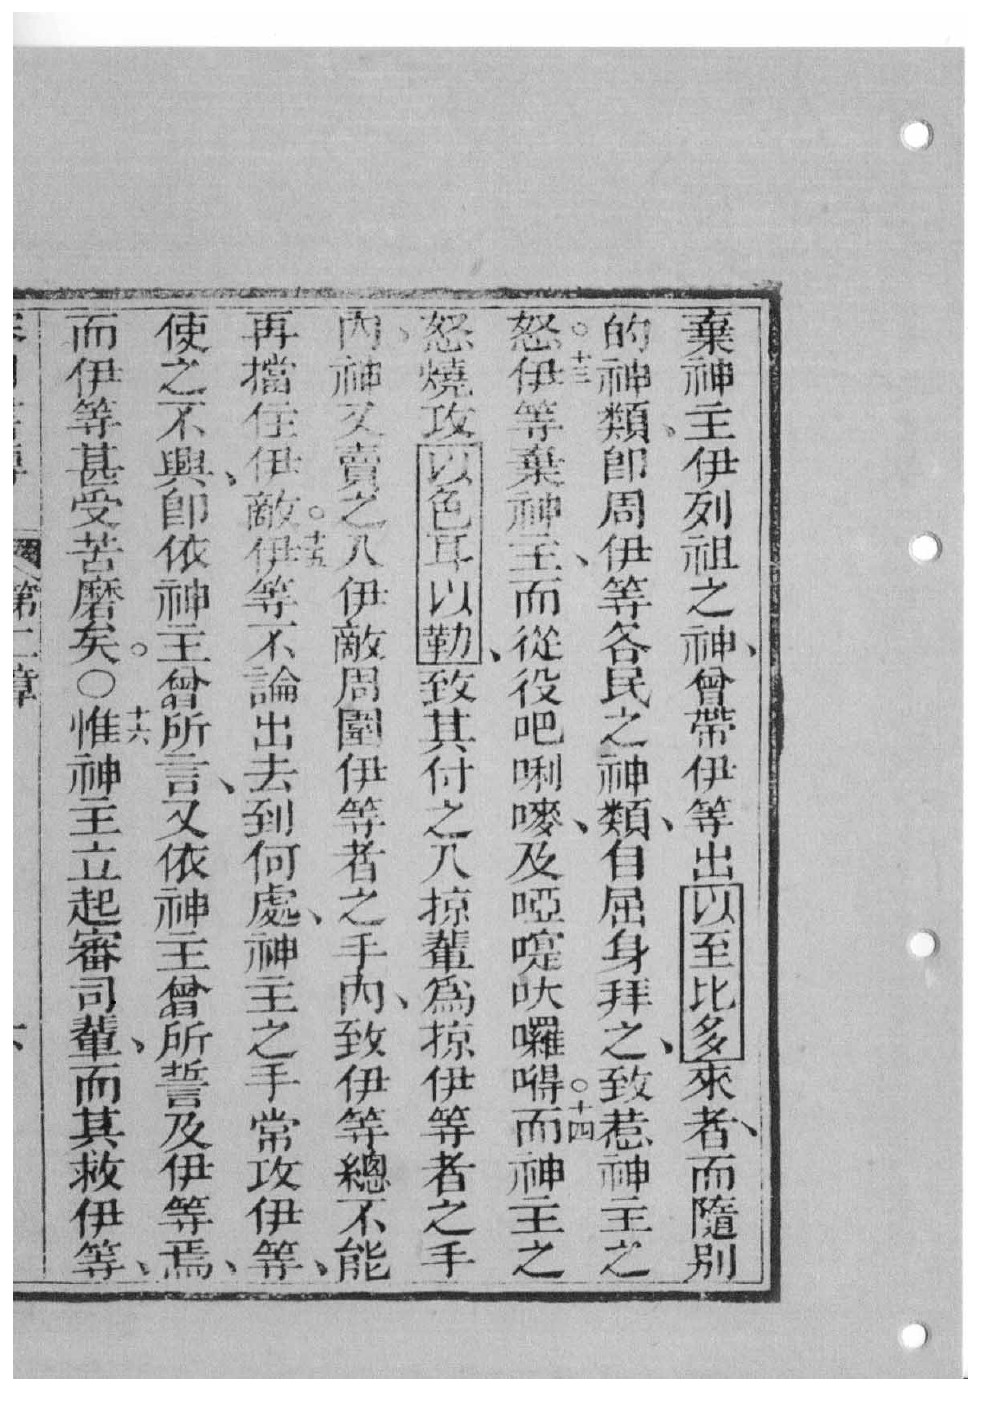 棄神主伊列祖之神、曾帶伊等出以至比多來者、而隨別
的神類、卽周伊等各民之神類、自屈身拜之、致惹神主之
怒。十三伊等棄神主、而從役吧唎嘜、及啞㖫呔囉嘚。十四而神主之
怒燒攻以色耳以勒、致其付之入掠輩爲掠伊等者之手
內、神又賣之入伊敵周圍伊等者之手內、致伊等總不能
再擋住伊敵。十五伊等不論出去到何處、神主之手常攻伊等、
使之不興、卽依神主曾所言、又依神主曾所誓及伊等焉、
而伊等甚受苦磨矣。〇十六惟神主立起審司輩、而其救伊等、
第二章